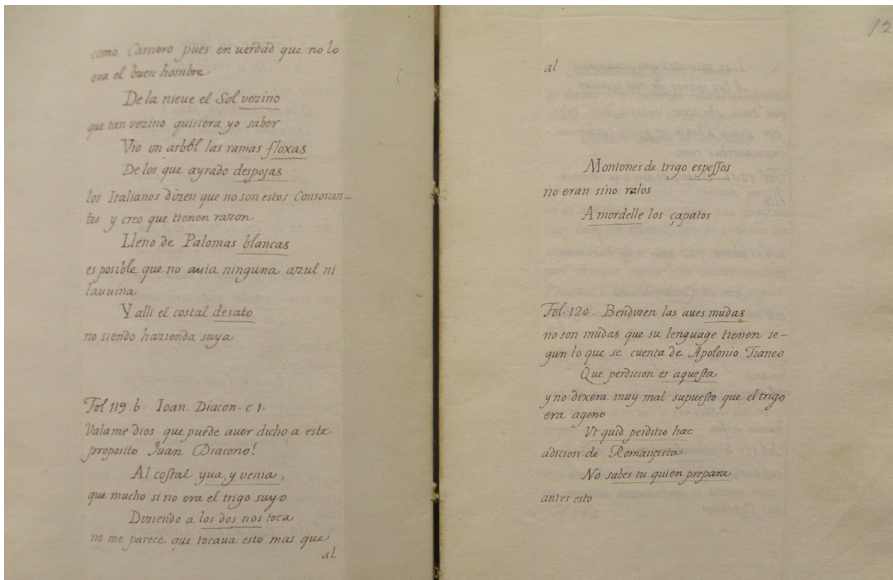 como Carnero pues en uerdad que no lo
era el buen hombre
De la nieue el Sol vezino
que tan vezino quisiera yo saber
Vio un arbol las ramas floxas
De los que ayrado despojas
los Italianos dizen que no son estos Consonan-
tes y creo que tienen razon
Lleno de Palomas blancas
es posible que no auia ninguna azul ni
Y alli el costal desato
no siendo hazienda suya
Fol 119. b. Ioan. Diacon. c 1.
Valame dios que puede auer dicho a este
proposito Juan Diacono!
Al costal yua, y venia,
que mucho si no era el trigo suyo
Diziendo a los dos nos toca
no me parece que tocaua esto mas que
al
12
al
Montones de trigo espessos
no eran sino ralos
A mordelle los çapatos
Fol. 120. Bendizen las aues mudas
no son mudas que su lenguage tienen se-
gun lo que se cuenta de Apolonio Tianeo
Que perdicion es aquesta
y no dixera muy mal supuesto que el trigo
era ageno
Vt quid perditio hæc
adicion de Romancista
No sabes tu quien prepara
antes esto